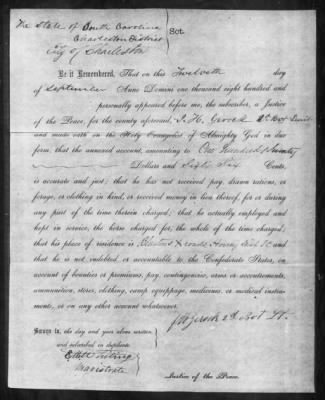 The State of South Carolina
Charleston District
City of Charleston
Sct.
Be it Remembered, That on this Twelveth day
of September Anno Domini one thousand eight hundred and
personally appeared before me, the subscriber, a Justice
of the Peace, for the county aforesaid,
and made oath on the Holy Evangelist of Almighty God in due
form, that the annexed account, amounting to One Hundred &
Dollars and Sixty Six Cents,
is accurate and just; that he has not received pay, drawn rations, or
forage, or clothing in kind, or received money in lieu thereof, for or during
any part of the time therein charged; that he actually employed and
kept in service, the horse charged for, the whole of the time charged;
that his place of residence is
that he is not indebted, or accountable to the Confederate States, on
account of bounties or premiums, pay, contingencies, arms or accoutrements,
ammunition, stores, clothing, camp equippage, medicines, or medical instru-
ments, or on any other account whatsoever.
Sworn to, the day and year above written,
and subscribed in duplicate
Magistrate
Justice of the Peace.